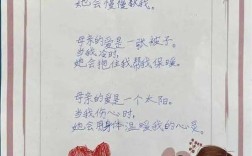 她会慢慢教我。
母亲的爱是一张被子。
当我冷时,
她会抱住我帮我保暖。
母亲的爱是一个太阳。
当我伤心时,
她会用身体温暖我的心灵。